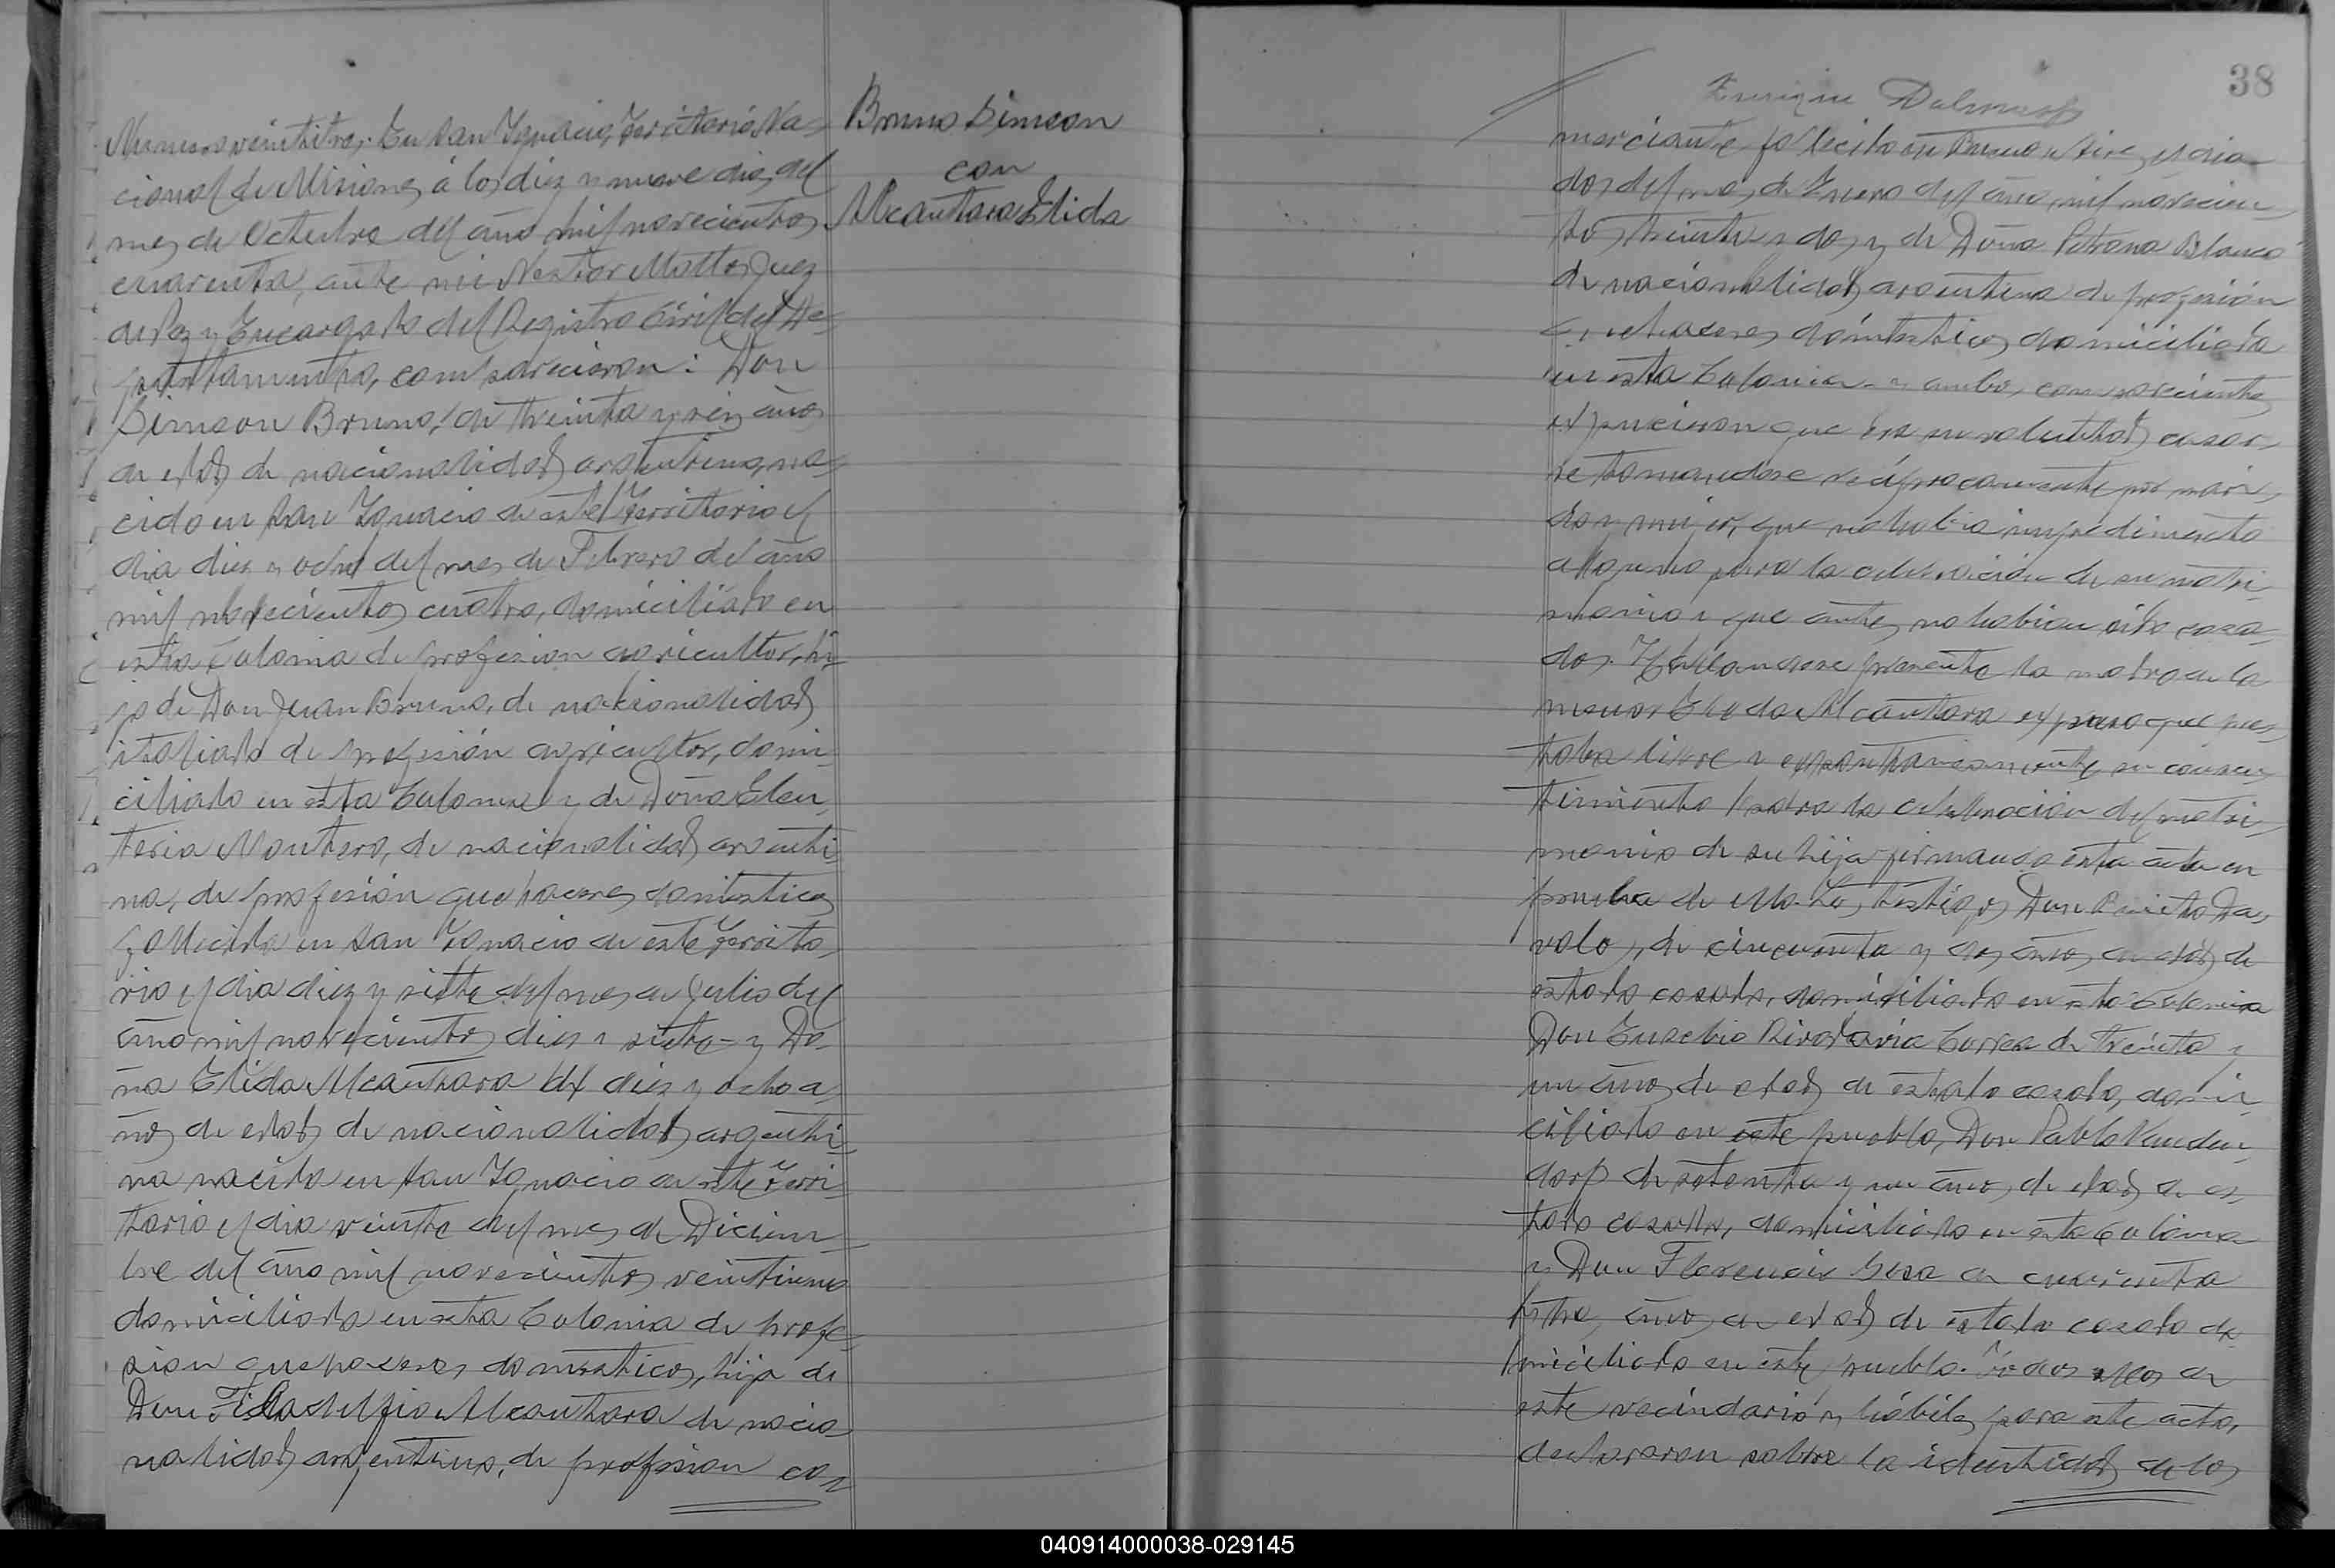 Numero veintitres. En San Ignacio, Territorio Na-
cional de Misiones, á los diez y nueve dias del
mes de Octubre del año mil novecientos
cuarenta, ante mi Nestor Mattos Juez
de Paz y Encargado del Registro Civil del De-
partamento, comparecieron: Don
Simeon Bruno, de treinta y seis años
de edad de nacionalidad argentina, na-
cido en San Ignacio de este Territorio el
dia diez y ocho del mes de Febrero del año
mil novecientos cuatro, domiciliado en
esta Colonia de profesion agricultor, hi-
jo de Don Juan Bruno, de nacionalidad
italiano de profesión agricultor, domi-
ciliado en esta Colonia y de Doña Eleu-
teria Montero, de nacionalidad argenti-
na, de profesión quehaceres domesticos
fallecida en San Ignacio de este Territo-
rio el dia diez y siete del mes de Julio del
año mil novecientos diez y siete - y Do-
ña Elida Alcantara de diez y ocho a-
ños de edad de nacionalidad argenti-
na nacida en San Ignacio de este Terri-
torio el dia veinte del mes de Diciem-
bre del año mil novecientos veintiuno
domiciliada en esta Colonia de profe-
sion quehaceres domesticos, hija de
Don Filadelfio Alcantara de nacio-
nalidad argentino, de profesion co-
Bruno Simeon
con
Alcantara Elida
38
Enrique
merciante fallecido en Buenos Aires el dia
dos del mes de Enero del año mil novecien-
tos treinta y dos y de Doña Petrona Blanco
de nacionalidad argentina de profesión
quehaceres domesticos domiciliada
en esta Colonia - y ambos comparecientes
expusieron que era su voluntad casar-
se tomandose reciprocamente por mari-
do y mujer, que no habia impedimento
alguno para la celebración de su matri-
monio y que antes no habian sido casa-
dos. Hallandose presente la madre de la
menor Elida Alcantara expuso que pres-
taba libre y espontaneamente su consen-
timiento para la celebración del matri-
monio de su hija firmando esta acta en
prueba de ello. Los testigos Don Benito Da-
valos, de cincuenta y dos años de edad de
estado casado, domiciliado en esta Colonia
Don Eusebio Rivadavia Correa de treinta y
un años de edad de estado casado, domi-
ciliado en este pueblo, Don Pablo Vanden-
dorp de setenta y un años de edad de es-
tado casado, domiciliado en esta Colonia
y Don Florencio Sosa de cuarenta
y tres años de edad de estado casado do-
miciliado en este pueblo. Todos ellos de
este vecindario y hábiles para este acto,
declararon sobre la identidad de los
040914000038-029145